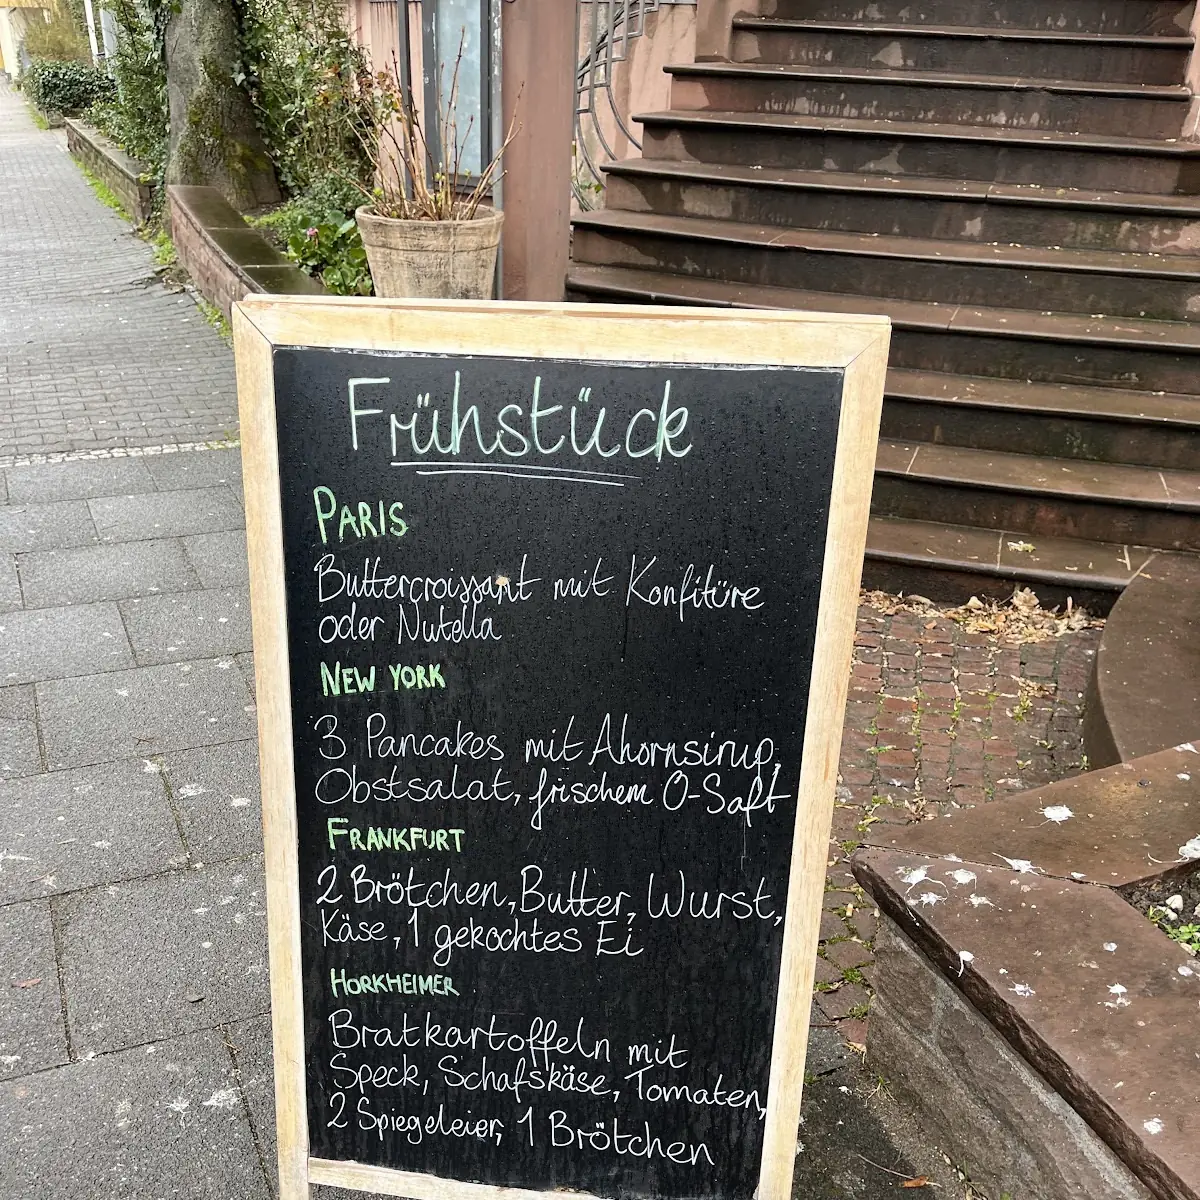 Frühstück
PARIS
Buttercroissant mit Konfitüre
oder Nutella
NEW YORK
3 Pancakes mit Ahornsirup,
Obstsalat, frischem O-Saft
FRANKFURT
2 Brötchen, Butter, Wurst,
Käse, 1 gekochtes Ei
HORKHEIMER
Bratkartoffeln mit
Speck, Schafskäse, Tomaten,
2 Spiegeleier, 1 Brötchen